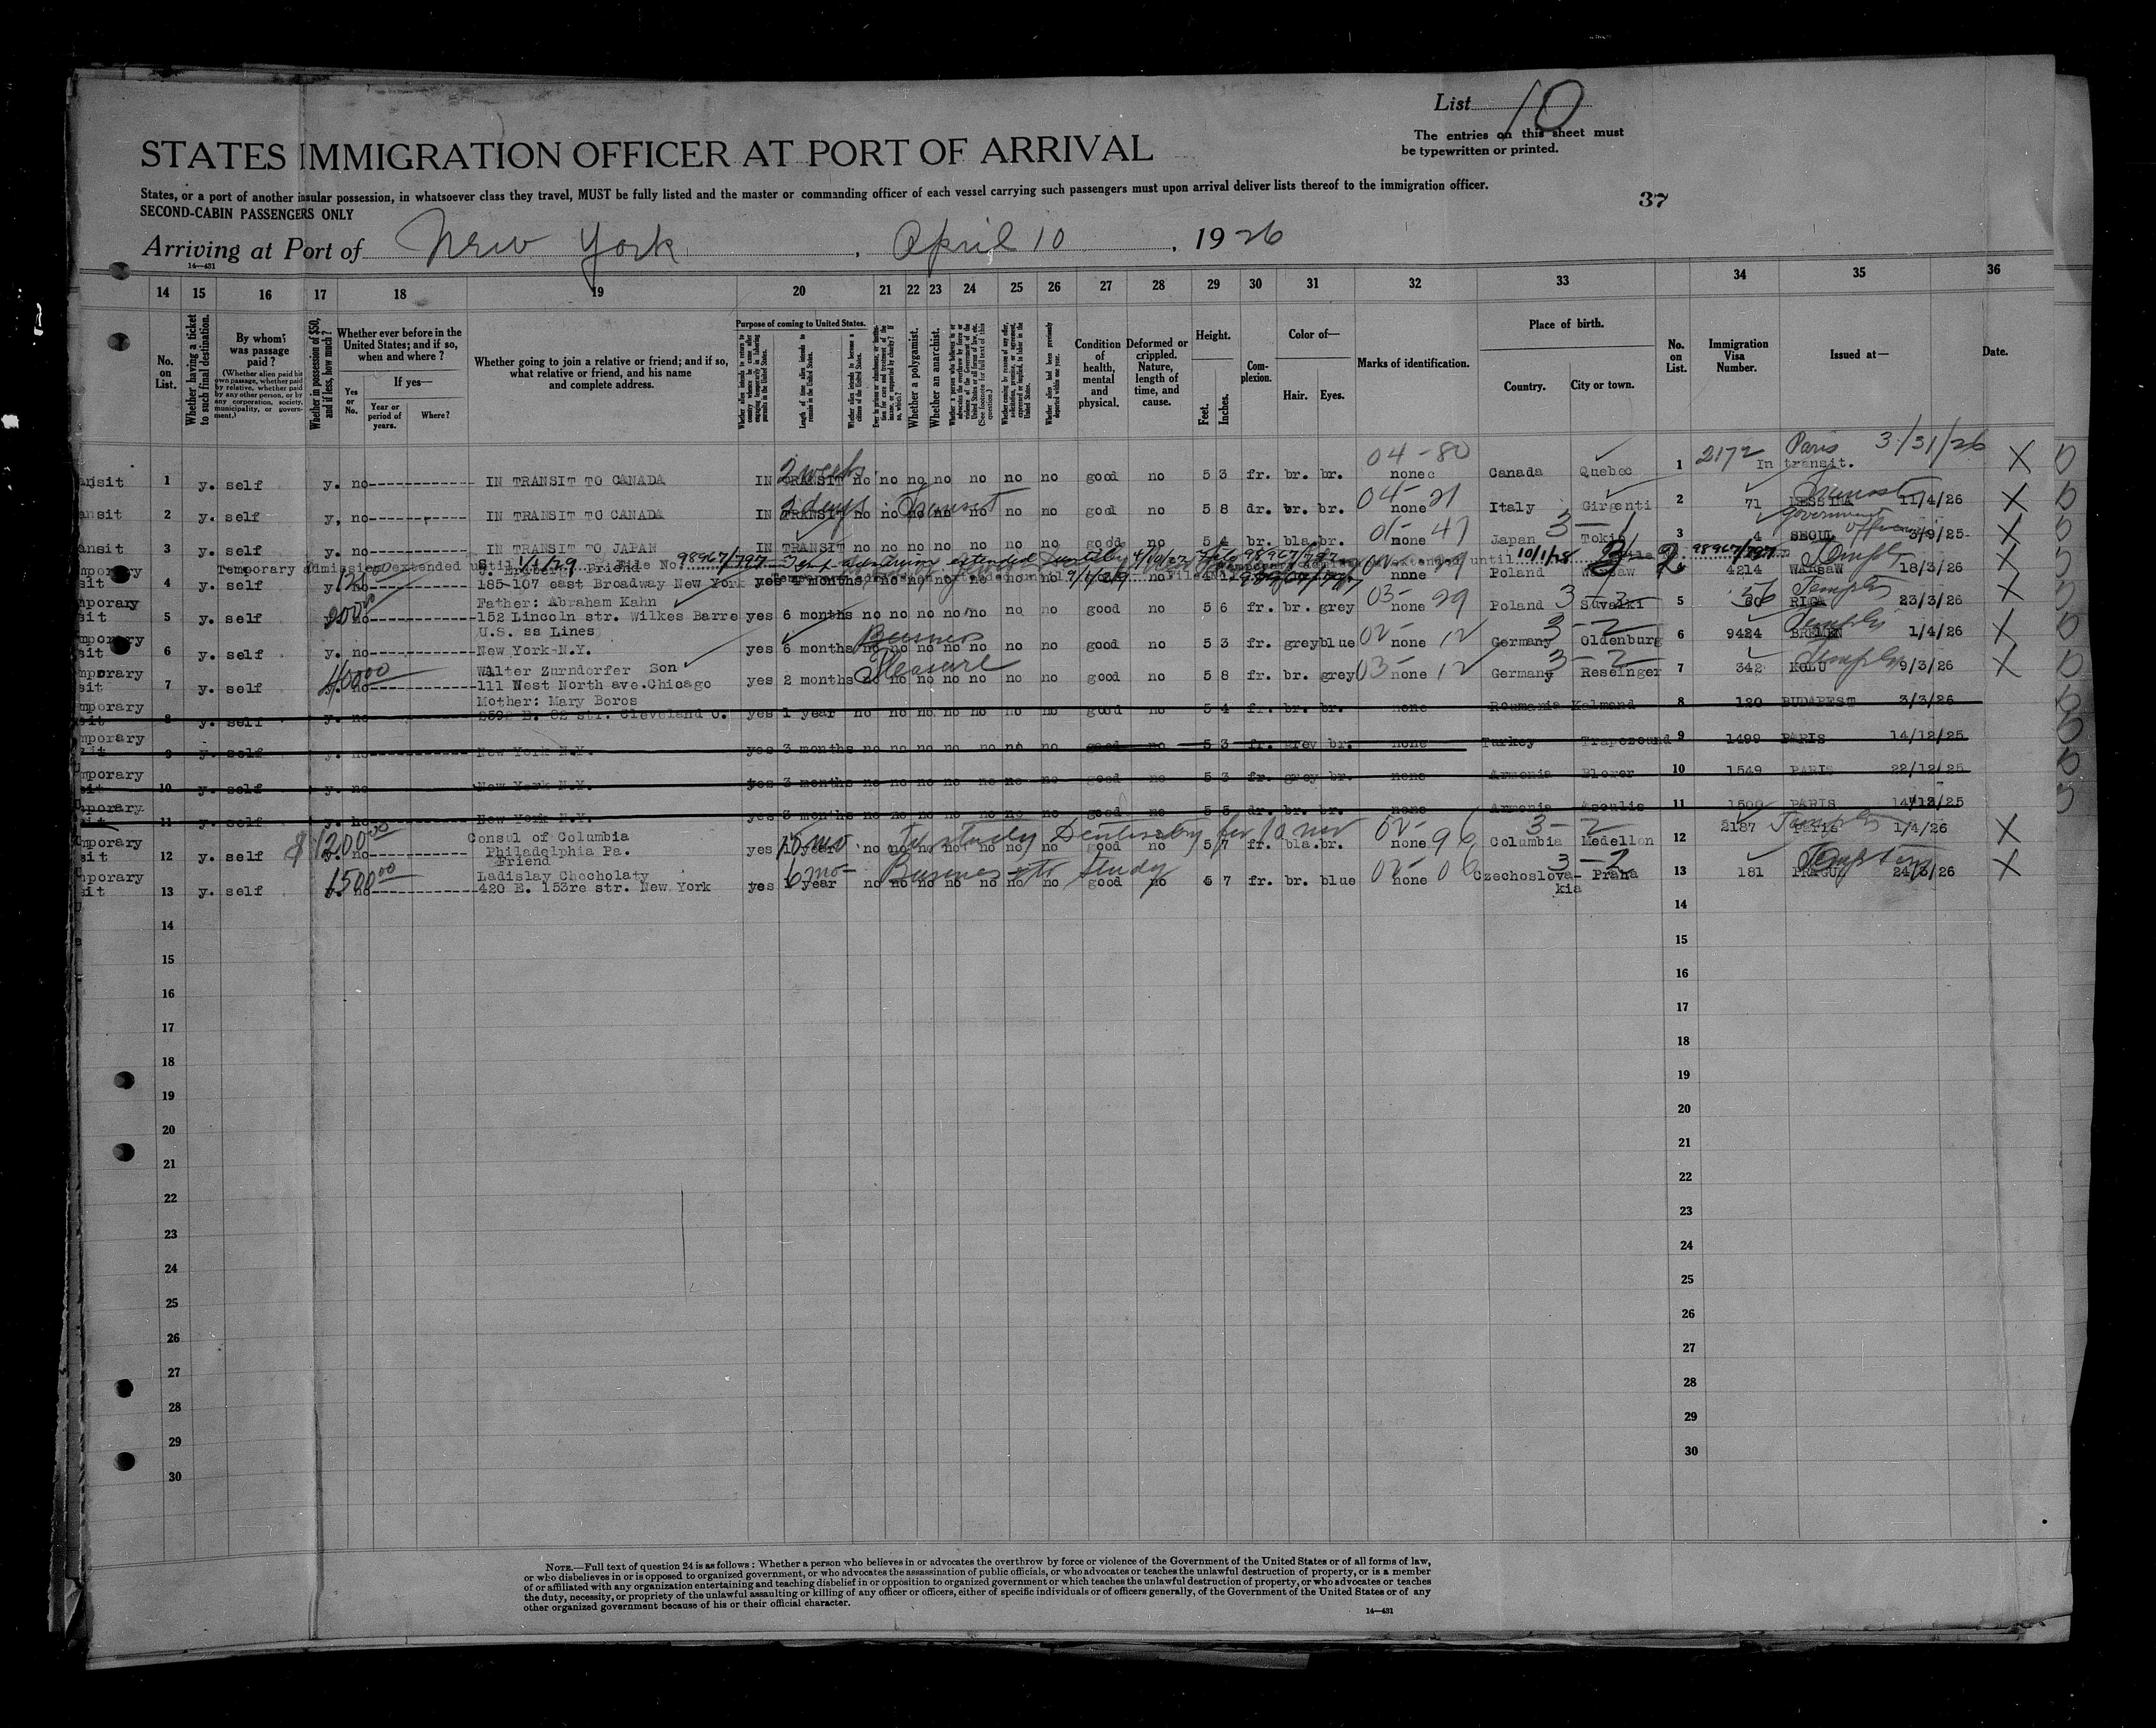 List 10
The entries on this sheet must
be typewritten or printed.
STATES IMMIGRATION OFFICER AT PORT OF ARRIVAL
States, or a port of another insular possession, in whatsoever class they travel, MUST be fully listed and the master or commanding officer of each vessel carrying such passengers must upon arrival deliver lists thereof to the immigration officer.
SECOND-CABIN PASSENGERS ONLY
37
Arriving at Port of New York, April 10, 1926
14—431
14 15 16 17 18 19 20 21 22 23 24 25 26 27 28 29 30 31 32 33 34 35 36
No. on List.
Whether having a ticket to such final destination.
By whom was passage paid?
(Whether alien paid his own passage, whether paid by relative, whether paid by any other person, or by any corporation, society, municipality, or government.)
Whether in possession of $50, and if less, how much?
Whether ever before in the United States; and if so, when and where?
Yes or No.
If yes—
Year or period of years.
Where?
Whether going to join a relative or friend; and if so, what relative or friend, and his name and complete address.
Purpose of coming to United States.
Length of time alien intends to remain in the United States.
Whether alien intends to become a citizen of the United States.
Whether a polygamist.
Whether an anarchist.
Condition of health, mental and physical.
Deformed or crippled. Nature, length of time, and cause.
Height.
Feet.
Inches.
Complexion.
Color of—
Hair. Eyes.
Marks of identification.
Place of birth.
Country. City or town.
No. on List.
Immigration Visa Number.
Issued at—
Date.
04-80 2172 Paris 3/31/26
2 weeks
ansit 1 y. self y. no IN TRANSIT TO CANADA IN TRANSIT no no no no no no no good no 5 3 fr. br. br. none Canada Quebec 1 In transit. X
2 days Transit 04-21 Transit
ansit 2 y. self y. no IN TRANSIT TO CANADA IN TRANSIT no no no no no no no good no 5 8 dr. br. br. none Italy Girgenti 2 71 MESSINA 11/4/26 X
01-47 3-1 Government
ansit 3 y. self y. no IN TRANSIT TO JAPAN IN TRANSIT no no no no no no no good no 5 4 br. bla. br. none Japan Tokio 3 4 SEOUL 3/9/25 X
Temporary admission extended until 1/1/29 File No 98967/797 until 10/1/28 98967/797
Friend
mporary sit 4 y. self y. no 185-107 east Broadway New York yes months no no no no no no no good no none Poland Warsaw 4214 WARSAW 18/3/26 X
200 Father: Abraham Kahn 03-29 3-2 56
mporary sit 5 y. self y. no 152 Lincoln str. Wilkes Barre yes 6 months no no no no no no no good no 5 6 fr. br. grey none Poland Suvalki 5 60 RIGA 23/3/26 X
U.S. ss Lines Business 02-12 3-2
mporary sit 6 y. self y. no New York-N.Y. yes 6 months no no no no no no no good no 5 3 fr. grey blue none Germany Oldenburg 6 9424 BREMEN 1/4/26 X
400 00 Walter Zurndorfer Son Pleasure 03-12 3-2
mporary sit 7 y. self y. no 111 West North ave. Chicago yes 2 months no no no no no no no good no 5 8 fr. br. grey none Germany Reseinger 7 342 9/3/26 X
Mother: Mary Boros
mporary sit 8 y. self y. no E. 82 str. Cleveland O. yes 1 year no no no no no no no good no 5 4 fr. br. br. none Roumania Kelmand 8 120 BUDAPEST 3/3/26
mporary sit 9 y. self y. no New York N.Y. yes 3 months no no no no no no no good no 5 3 fr. grey br. none Turkey Trapezound 9 1499 PARIS 14/12/25
mporary sit 10 y. self y. no New York N.Y. yes 3 months no no no no no no no good no 5 3 fr. grey br. none Armenia 10 1549 PARIS 22/12/25
mporary 11 y. self y. no New York N.Y. yes 3 months no no no no no no no good no 5 5 dr. br. br. none Armenia 11 1500 PARIS 14/12/25
$1200 00 Consul of Columbia To study Dentistry for 10 mo 02-96 3-2
mporary sit 12 y. self y. no Philadelphia Pa. yes 1 year no no no no no no no good no 5 7 fr. bla. br. none Columbia Medellon 12 2187 PARIS 1/4/26 X
1500 00 Friend 6 mo Business to Study 02-06 3-2
Ladislay Chocholaty
mporary sit 13 y. self y. no 420 E. 153re str. New York yes 1 year no no no no no no no good no 5 7 fr. br. blue none Czechoslovakia Praha 13 181 PRAGUE 24/3/26 X
14 14
15 15
16 16
17 17
18 18
19 19
20 20
21 21
22 22
23 23
24 24
25 25
26 26
27 27
28 28
29 29
30 30
NOTE.—Full text of question 24 is as follows: Whether a person who believes in or advocates the overthrow by force or violence of the Government of the United States or of all forms of law,
or who disbelieves in or is opposed to organized government, or who advocates the assassination of public officials, or who advocates or teaches the unlawful destruction of property, or is a member
of or affiliated with any organization entertaining and teaching disbelief in or opposition to organized government or which teaches the unlawful destruction of property, or who advocates or teaches
the duty, necessity, or propriety of the unlawful assaulting or killing of any officer or officers, either of specific individuals or of officers generally, of the Government of the United States or of any
other organized government because of his or their official character.
14—431